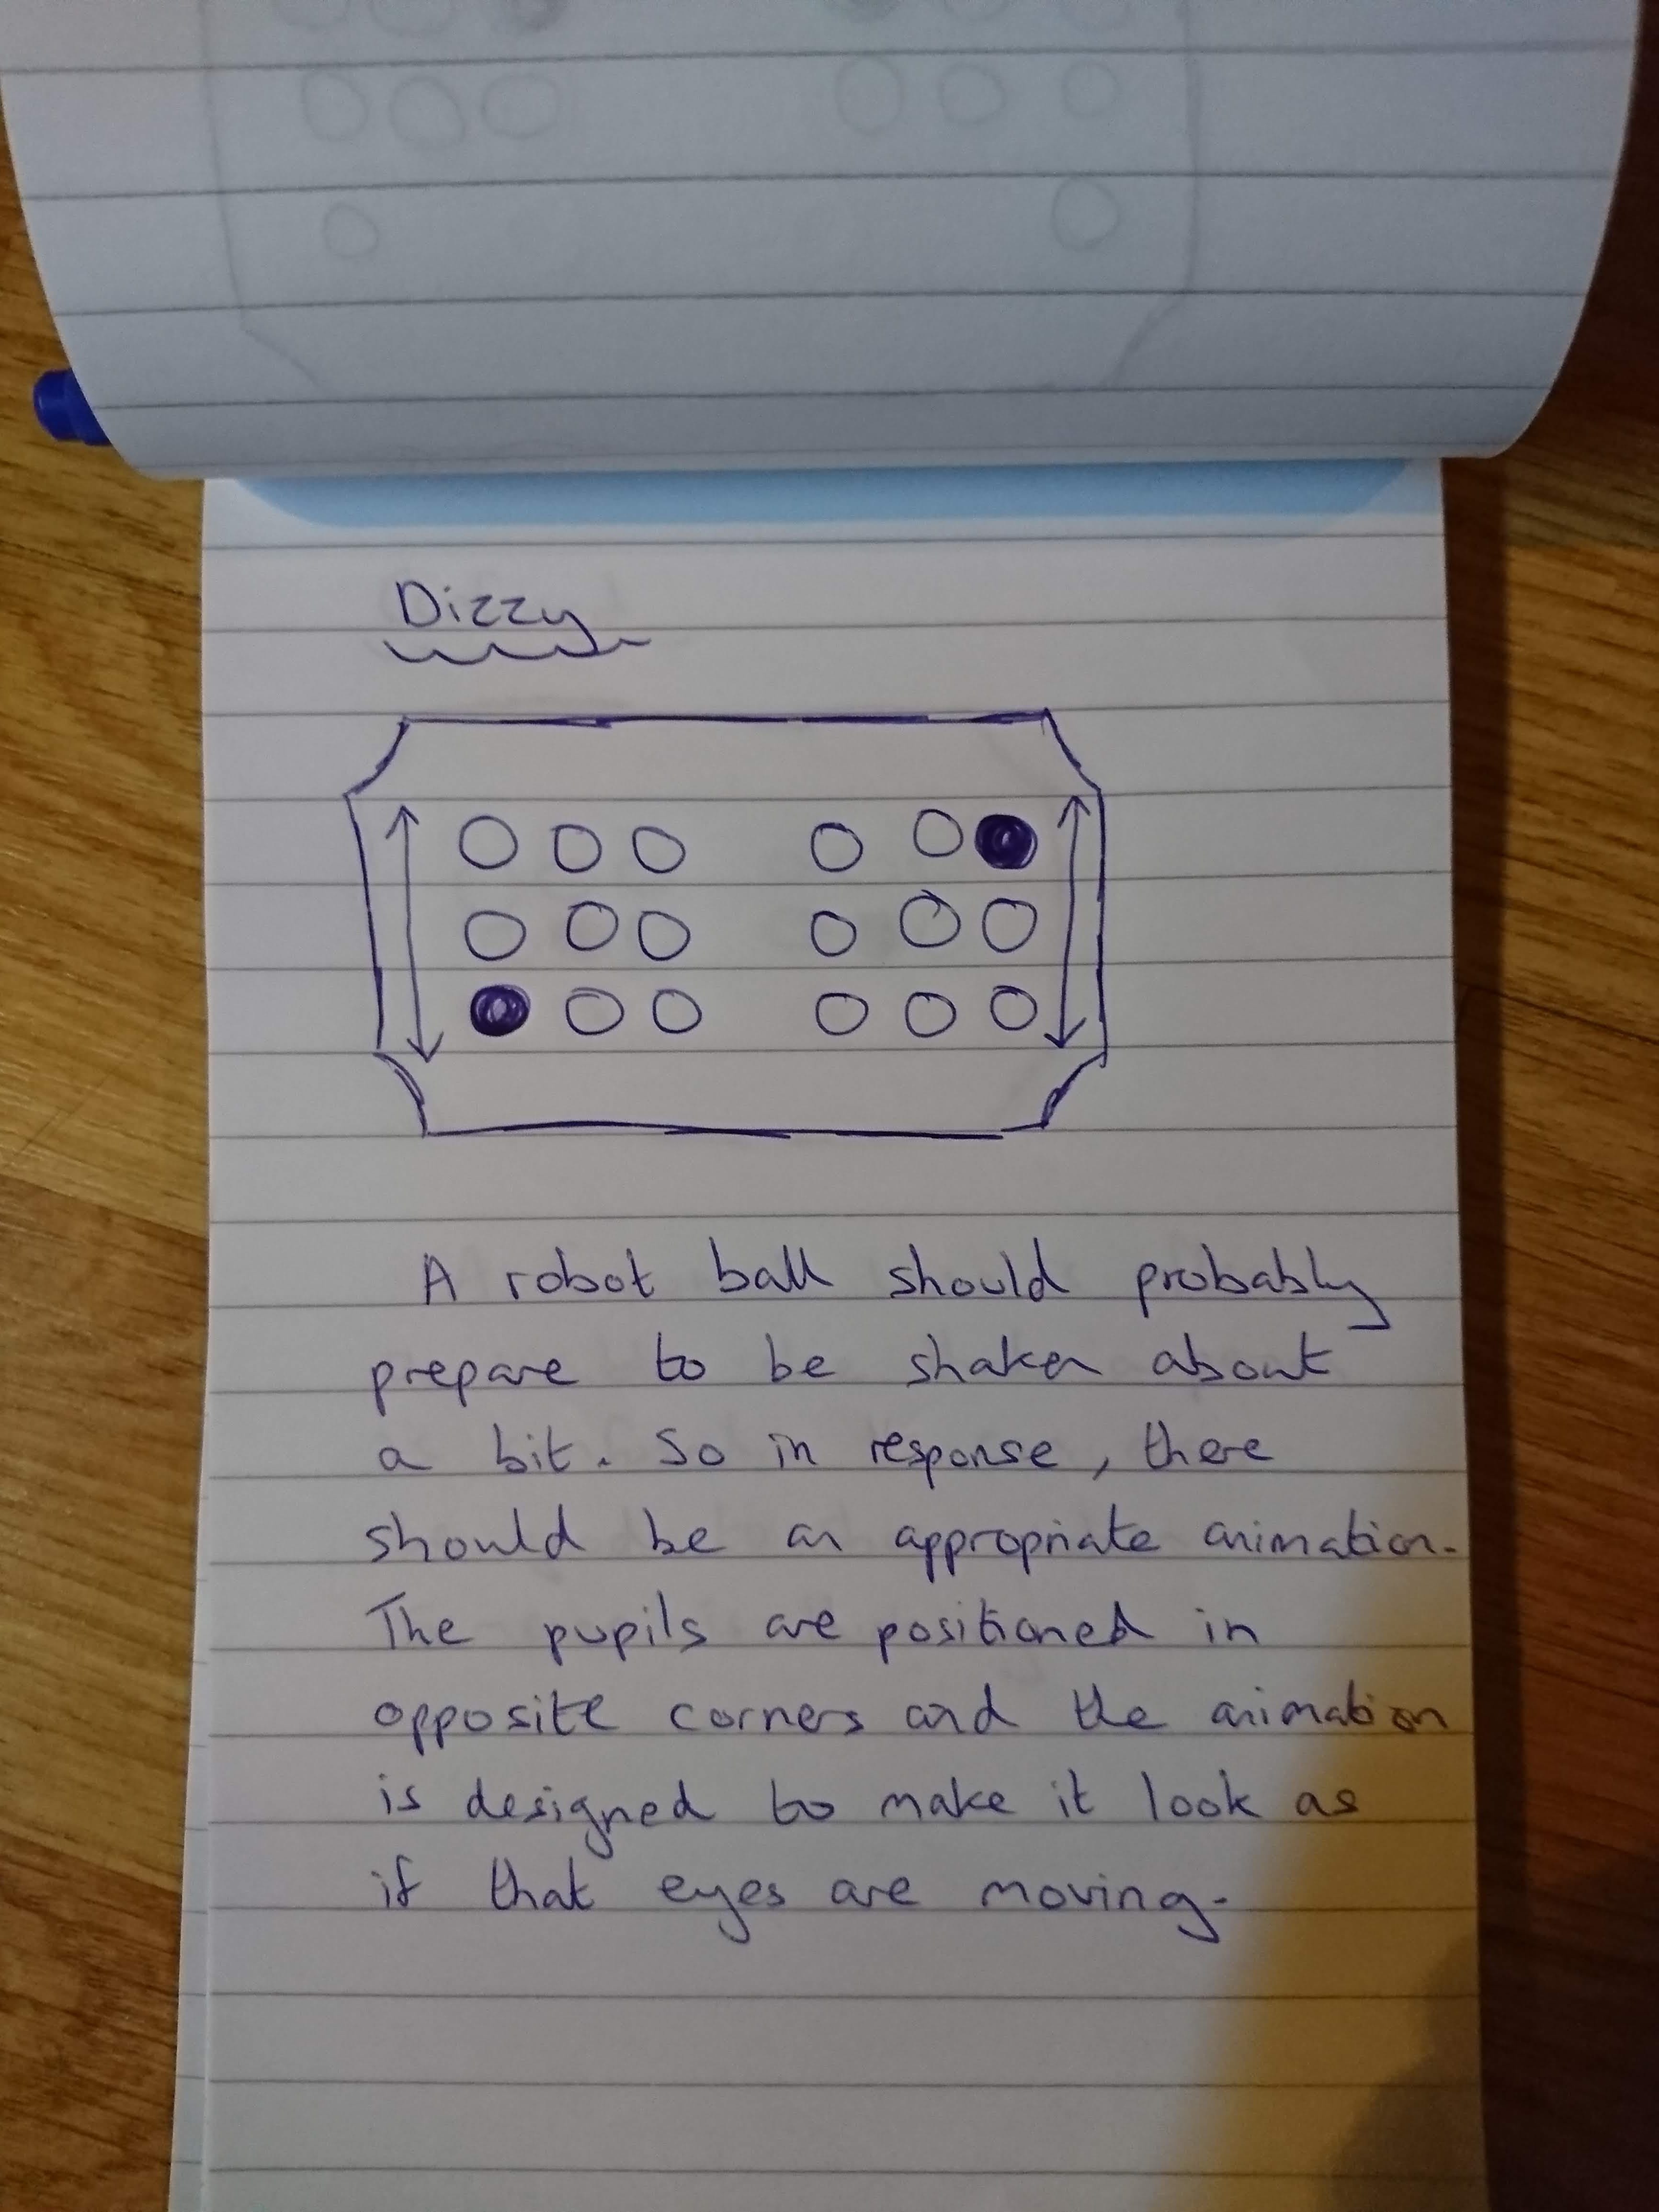 Dizzy
A robot ball should probably
prepare to be shaken about
a bit. So in response, there
should be an appropriate animation.
The pupils are positioned in
opposite corners and the animation
is designed to make it look as
if that eyes are moving.